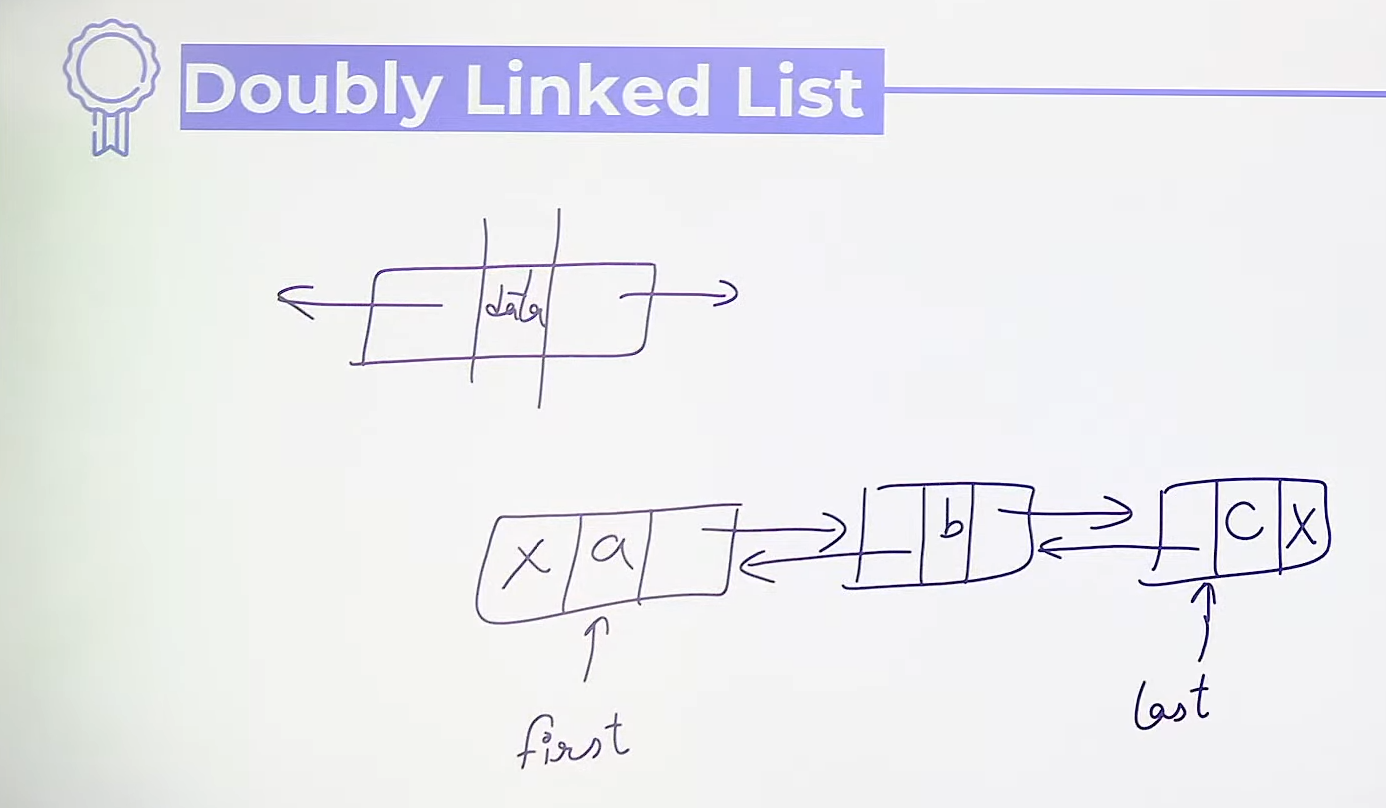 Doubly Linked List
data
X a b c X
first
last